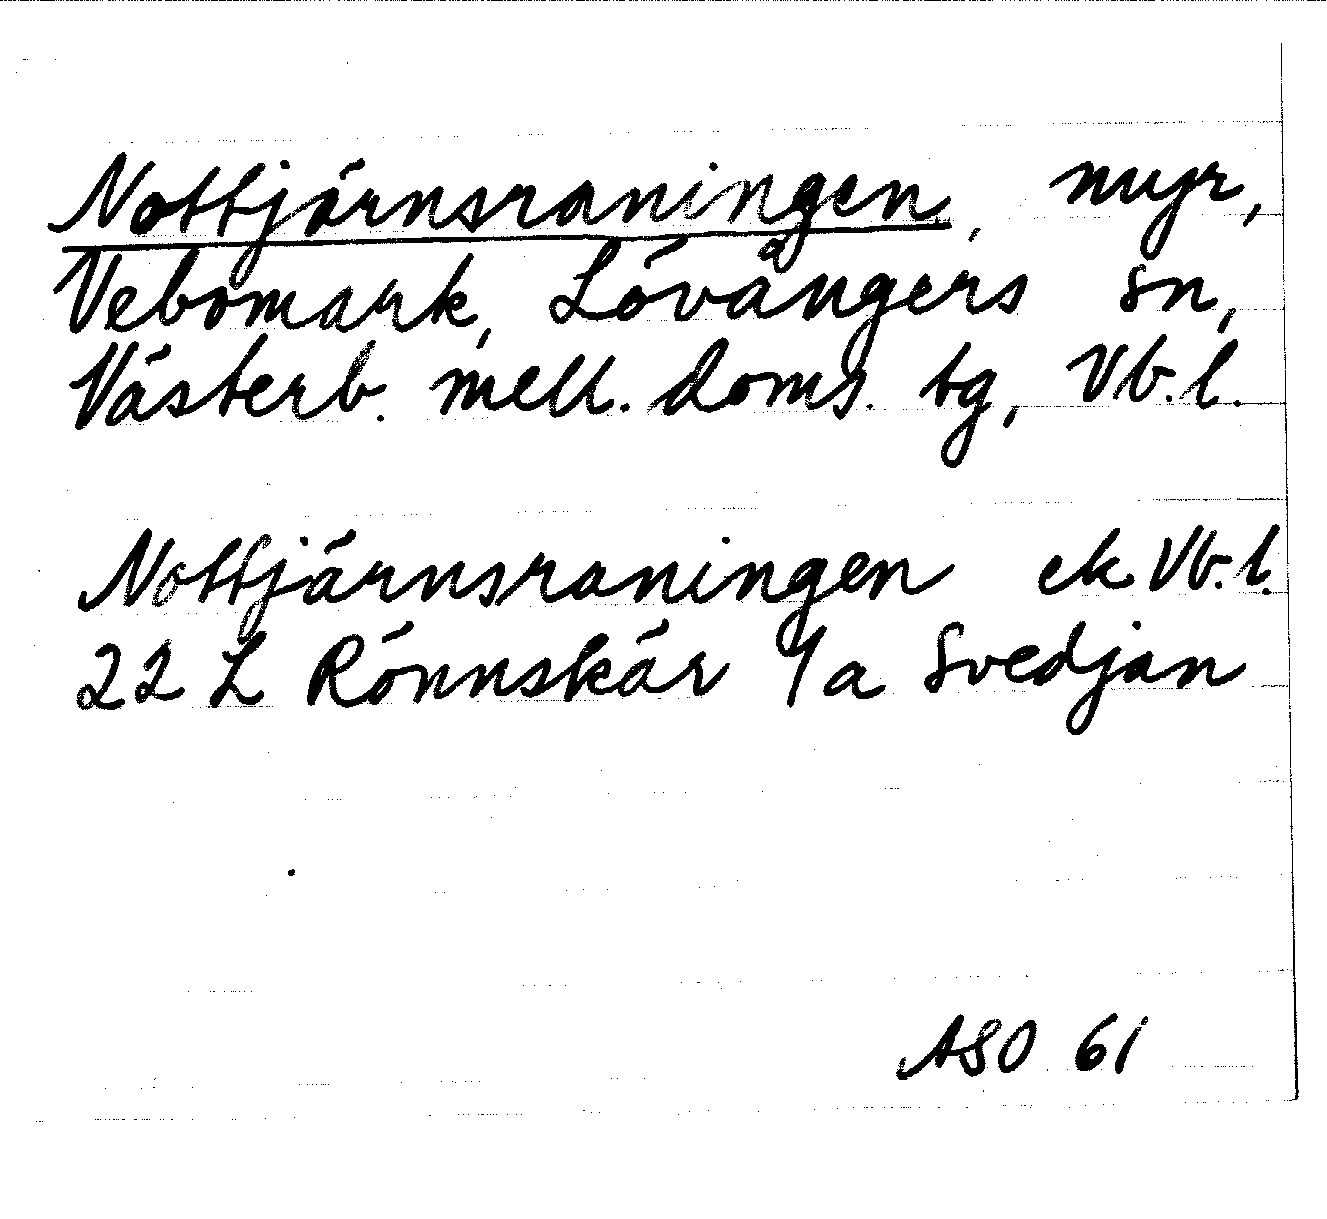 Nottjärnsraningen, myr,
Vebomark, Lövångers sn,
Västerb. mell. doms. tg, Vb.l.
Nottjärnsraningen ek Vb.l.
22 L Rönnskär 1/a Svedjan
ASO 61